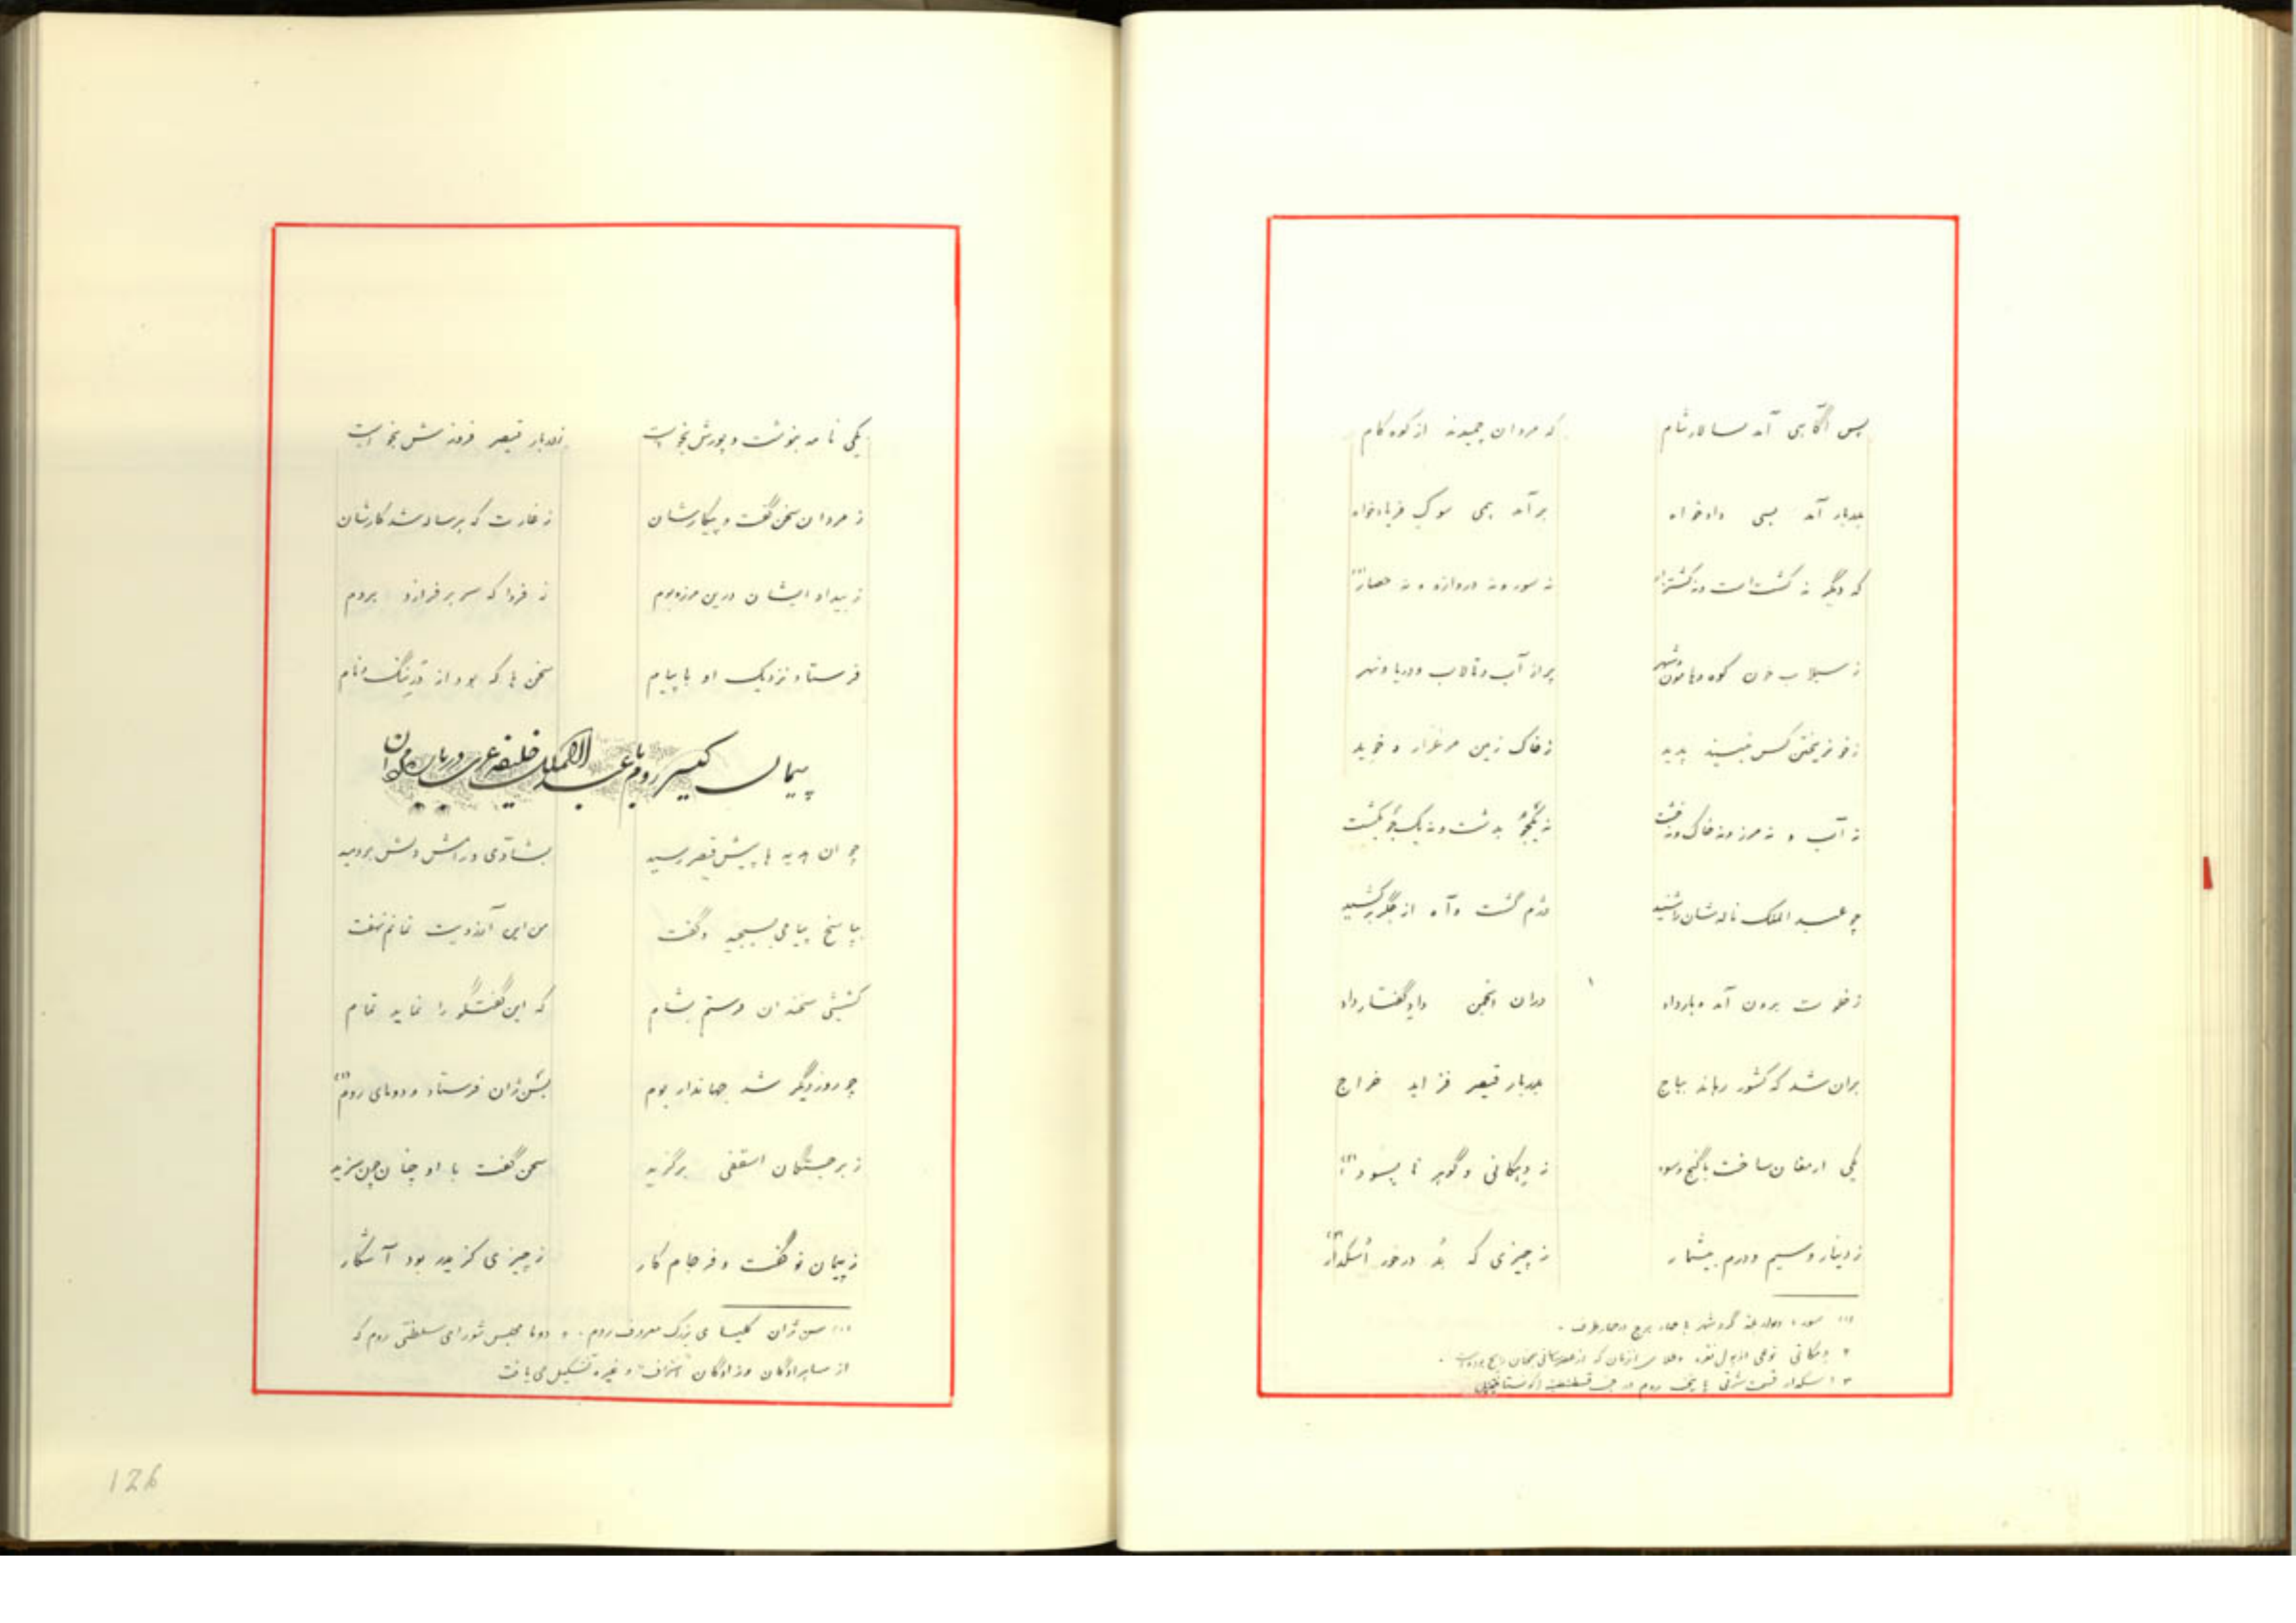 پس آگاهی آمد سالار شام    که مردان چمیدند از کوه کام
بدربار آمد بسی دادخواه    برآمد همی سوک فریادخواه
که دیگر نه کشت است ونه کشتزار    نه سور ونه دروازه ونه حصار (۱)
ز سیلاب خون کوه وهامون وشهر    پر از آب وتالاب ودریا ونهر
کس پدید    زخاک زمین مرغزار و خوید
نه آب و نه مرز ونه خاک ونه    بدشت ونه بکشت
چو عبد الملک ناله شان را شنید    دژم گشت وآه از جگر برکشید
زخلوت برون آمد وبارداد    دران انجمن داد گفتار داد
بران شد که کشور رهاند بباج    بدربار قیصر فزاید خراج
یکی ارمغان ساخت با گنج وسود    ز دهکانی و گوهر نا پسود (۲)
زدینار وسیم ودرم بیشمار    ز چیزی که بد درخور اسکدار (۳)
(۱) سور = دیوار بلند گرد شهر با چهار برج
۲ دهکانی نوعی از پول نقره وطلا
۳ اسکدار قسمت شرقی پایتخت روم
یکی نامه بنوشت وپوزش بخواست    ز دربار قیصر فروزش بخواست
ز مردان سخن گفت و پیکارشان    ز غارت که برساد شد کارشان
ز بیداد ایشان درین مرزوبوم    ز فردا که سر برفرازد بروم
فرستاد نزدیک او با پیام    سخن ها که بود از درننگ ونام
پیمان کیسر روم با عبدالملک خلیفه عرب دربارۀ مردان
چو ان هدیه ها پیش قیصر رسید    بشادی ورامش دلش بردمید
بپاسخ پیامی بسیجید وگفت    من این آرزویت نمانم نهفت
کشیشی سخندان فرستم بشام    که این گفتگو را نماید تمام
چو روز دیگر شد جهاندار بوم    بسن ژان فرستاد ودومای روم (۱)
ز برجستگان اسقفی برگزید    سخن گفت با او چنان چون سزید
زپیمان نو گفت وفرجام کار    زچیزی کزو بود آشکار
(۱) سن ژان کلیسای بزرگ معروف روم. و دوما مجلس شورای سلطنتی روم که
از سایرادگان وزادگان "اشراف" و غیره تشکیل می یافت
126